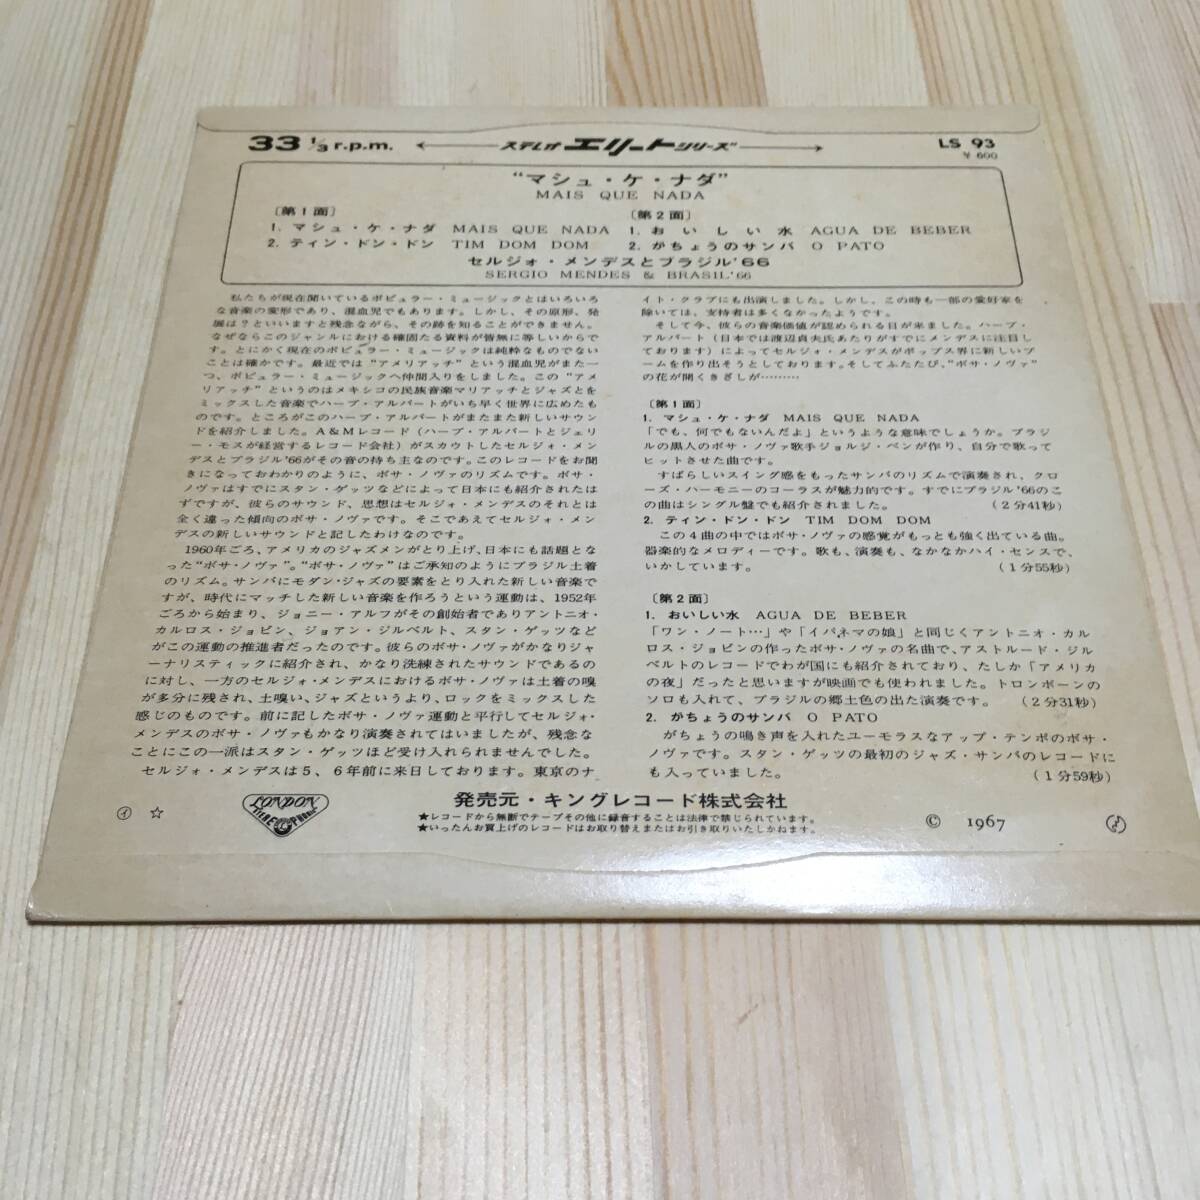 33 1/3 r.p.m. ステレオ エリートシリーズ LS 93
¥ 600
“マシュ・ケ・ナダ”
MAIS QUE NADA
〔第1面〕
1. マシュ・ケ・ナダ MAIS QUE NADA
2. ティン・ドン・ドン TIM DOM DOM
〔第2面〕
1. おいしい水 AGUA DE BEBER
2. がちょうのサンバ O PATO
セルジォ・メンデスとブラジル’66
SERGIO MENDES & BRASIL’66
私たちが現在聞いているポピュラー・ミュージックとはいろいろ
な音楽の変形であり、混血児でもあります。しかし、その原形、発
展は？といいますと残念ながら、その跡を知ることができません。
なぜならこのジャンルにおける確固たる資料が皆無に等しいからで
す。とにかく現在のポピュラー・ミュージックは純粋なものでない
ことは確かです。最近では“アメリアッチ”という混血児がまた一
つ、ポピュラー・ミュージックへ仲間入りをしました。この“アメ
リアッチ”というのはメキシコの民族音楽マリアッチとジャズとを
ミックスした音楽でハーブ・アルパートがいち早く世界に広めたも
のです。ところがこのハーブ・アルパートがまたまた新しいサウン
ドを紹介しました。A&Mレコード（ハーブ・アルパートとジェリ
ー・モスが経営するレコード会社）がスカウトしたセルジォ・メン
デスとブラジル’66がその音の持ち主なのです。このレコードをお聞
きになっておわかりのように、ボサ・ノヴァのリズムです。ボサ・
ノヴァはすでにスタン・ゲッツなどによって日本にも紹介されたは
ずですが、彼らのサウンド、思想はセルジォ・メンデスのそれとは
全く違った傾向のボサ・ノヴァです。そこであえてセルジォ・メン
デスの新しいサウンドと記したわけなのです。
1960年ごろ、アメリカのジャズメンがとり上げ、日本にも話題とな
った“ボサ・ノヴァ”。“ボサ・ノヴァ”はご承知のようにブラジル土着
のリズム。サンバにモダン・ジャズの要素をとり入れた新しい音楽で
すが、時代にマッチした新しい音楽を作ろうという運動は、1952年
ごろから始まり、ジョニー・アルフがその創始者でありアントニオ・
カルロス・ジョビン、ジョアン・ジルベルト、スタン・ゲッツなど
がこの運動の推進者だったのです。彼らのボサ・ノヴァがかなりジャ
ーナリスティックに紹介され、かなり洗練されたサウンドであるの
に対し、一方のセルジォ・メンデスにおけるボサ・ノヴァは土着の嗅
が多分に残され、土嗅い、ジャズというより、ロックをミックスした
感じのものです。前に記したボサ・ノヴァ運動と平行してセルジォ・
メンデスのボサ・ノヴァもかなり演奏されてはいましたが、残念な
ことにこの一派はスタン・ゲッツほど受け入れられませんでした。
セルジォ・メンデスは5、6年前に来日しております。東京のナ
イト・クラブにも出演しました。しかし、この時も一部の愛好家を
除いては、支持者は多くなかったようです。
そして今、彼らの音楽価値が認められる日が来ました。ハーブ・
アルパート（日本では渡辺貞夫氏あたりがすでにメンデスに注目し
ております）によってセルジォ・メンデスがポップス界に新しいブ
ームを作り出そうとしております。そしてふたたび、“ボサ・ノヴァ”
の花が開くきざしが………
〔第1面〕
1. マシュ・ケ・ナダ MAIS QUE NADA
「でも、何でもないんだよ」というような意味でしょうか。ブラジ
ルの黒人のボサ・ノヴァ歌手ジョルジ・ベンが作り、自分で歌って
ヒットさせた曲です。
すばらしいスイング感をもったサンバのリズムで演奏され、クロ
ーズ・ハーモニーのコーラスが魅力的です。すでにブラジル’66のこ
の曲はシングル盤でも紹介されました。 （2分41秒）
2. ティン・ドン・ドン TIM DOM DOM
この4曲の中ではボサ・ノヴァの感覚がもっとも強く出ている曲。
器楽的なメロディーです。歌も、演奏も、なかなかハイ・センスで、
いかしています。 （1分55秒）
〔第2面〕
1. おいしい水 AGUA DE BEBER
「ワン・ノート…」や「イパネマの娘」と同じくアントニオ・カル
ロス・ジョビンの作ったボサ・ノヴァの名曲で、アストルード・ジル
ベルトのレコードでわが国にも紹介されており、たしか「アメリカ
の夜」だったと思いますが映画でも使われました。トロンボーンの
ソロも入れて、ブラジルの郷土色の出た演奏です。 （2分31秒）
2. がちょうのサンバ O PATO
がちょうの鳴き声を入れたユーモラスなアップ・テンポのボサ・
ノヴァです。スタン・ゲッツの最初のジャズ・サンバのレコードに
も入っていました。 （1分59秒）
㋑ ☆ LONDON STEREOPHONIC 発売元・キングレコード株式会社
★レコードから無断でテープその他に録音することは法律で禁じられています。
★いったんお買上げのレコードはお取り替えまたはお引き取りいたしかねます。
© 1967